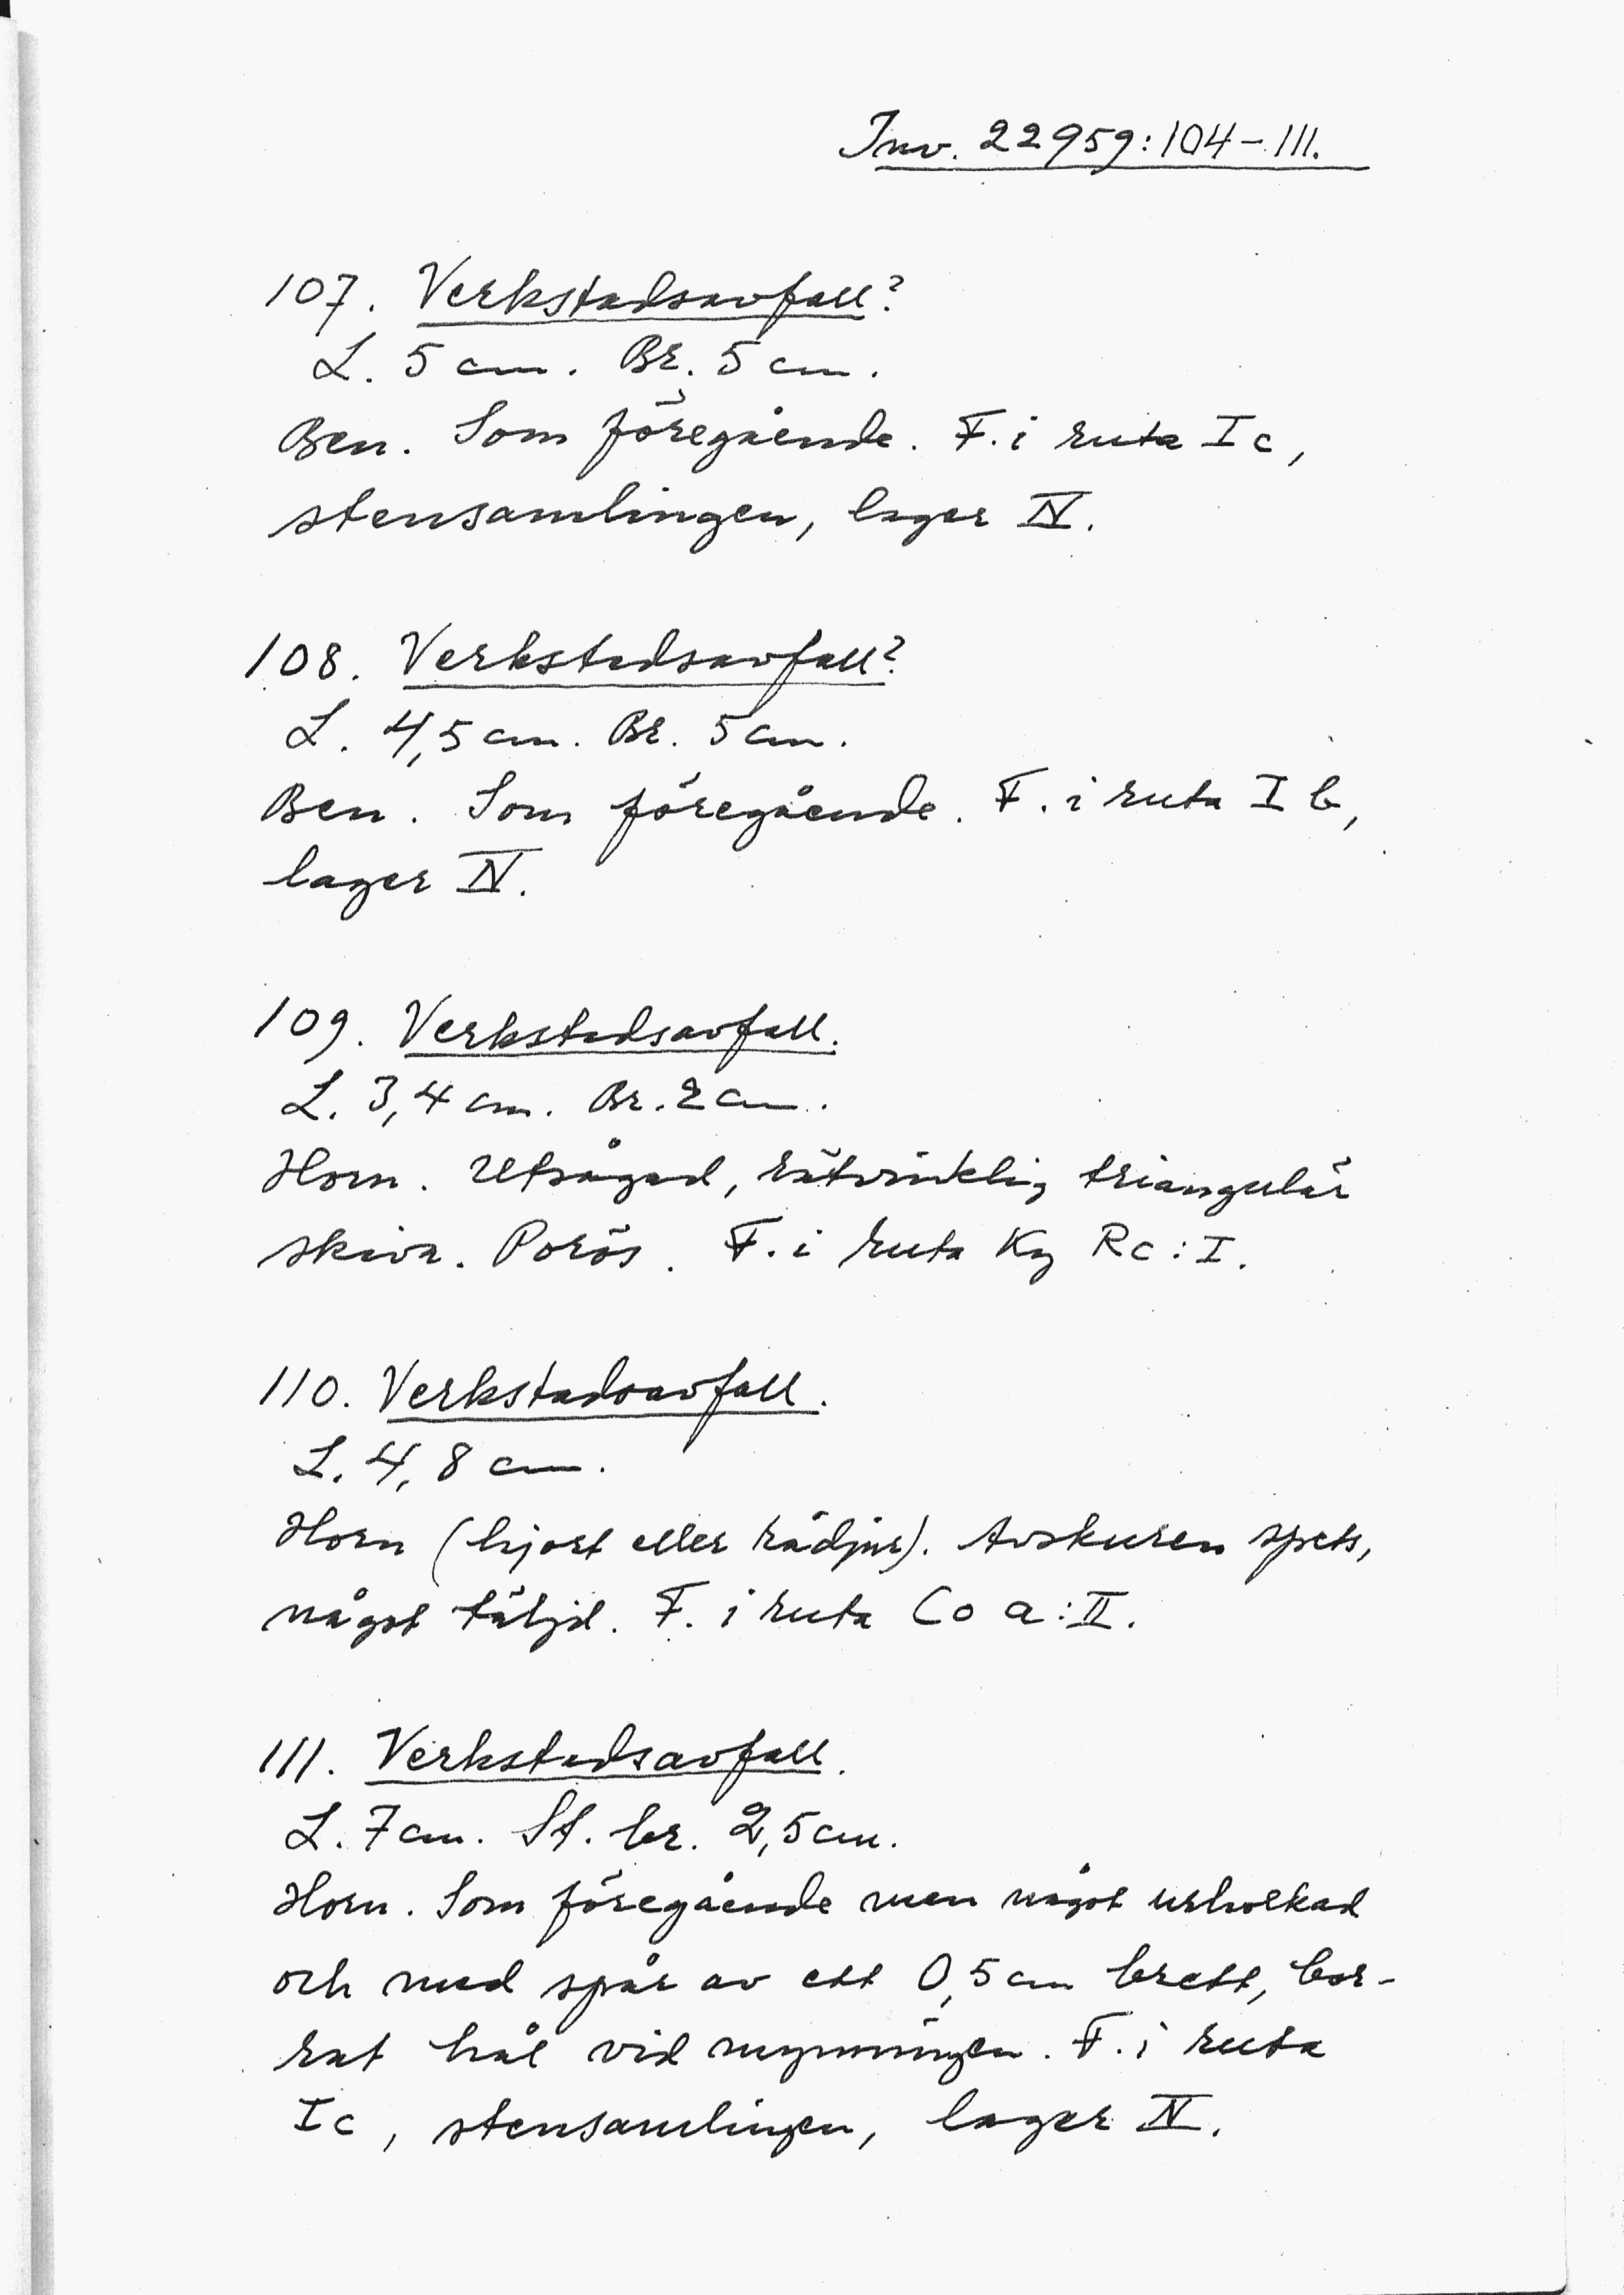 Inv. 22959:104-111.
107. Verkstadsavfall?
L. 5 cm. Br. 5 cm.
Ben. Som föregående. F. i ruta I c,
stensamlingen, lager IV.
108. Verkstadsavfall?
L. 4,5 cm. Br. 5 cm.
Ben. Som föregående. F. i ruta I b,
lager IV.
109. Verkstadsavfall.
L. 3,4 cm. Br. 2 cm.
Horn. Utsågad, rätvinklig triangulär
skiva. Porös. F. i ruta Kg Rc : I.
110. Verkstadsavfall.
L. 4,8 cm.
Horn (hjort eller rådjur). Avskuren spets,
något täljd. F. i ruta Co a : II.
111. Verkstadsavfall.
L. 7 cm. St. br. 2,5 cm.
Horn. Som föregående men något urholkad
och med spår av ett 0,5 cm brett, bor-
rat hål vid mynningen. F. i ruta
I c, stensamlingen, lager IV.